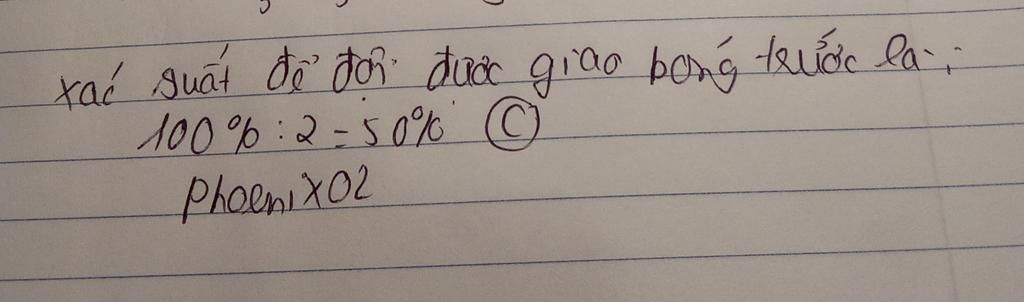 xác suất để đội được giao bóng trước là:
100% : 2 = 50% (C)
PhoeniX02